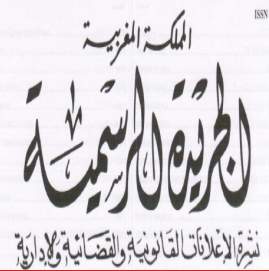 ISSN
المملكة المغربية
الجريدة الرسمية
نشرة الإعلانات القانونية والقضائية والإدارية